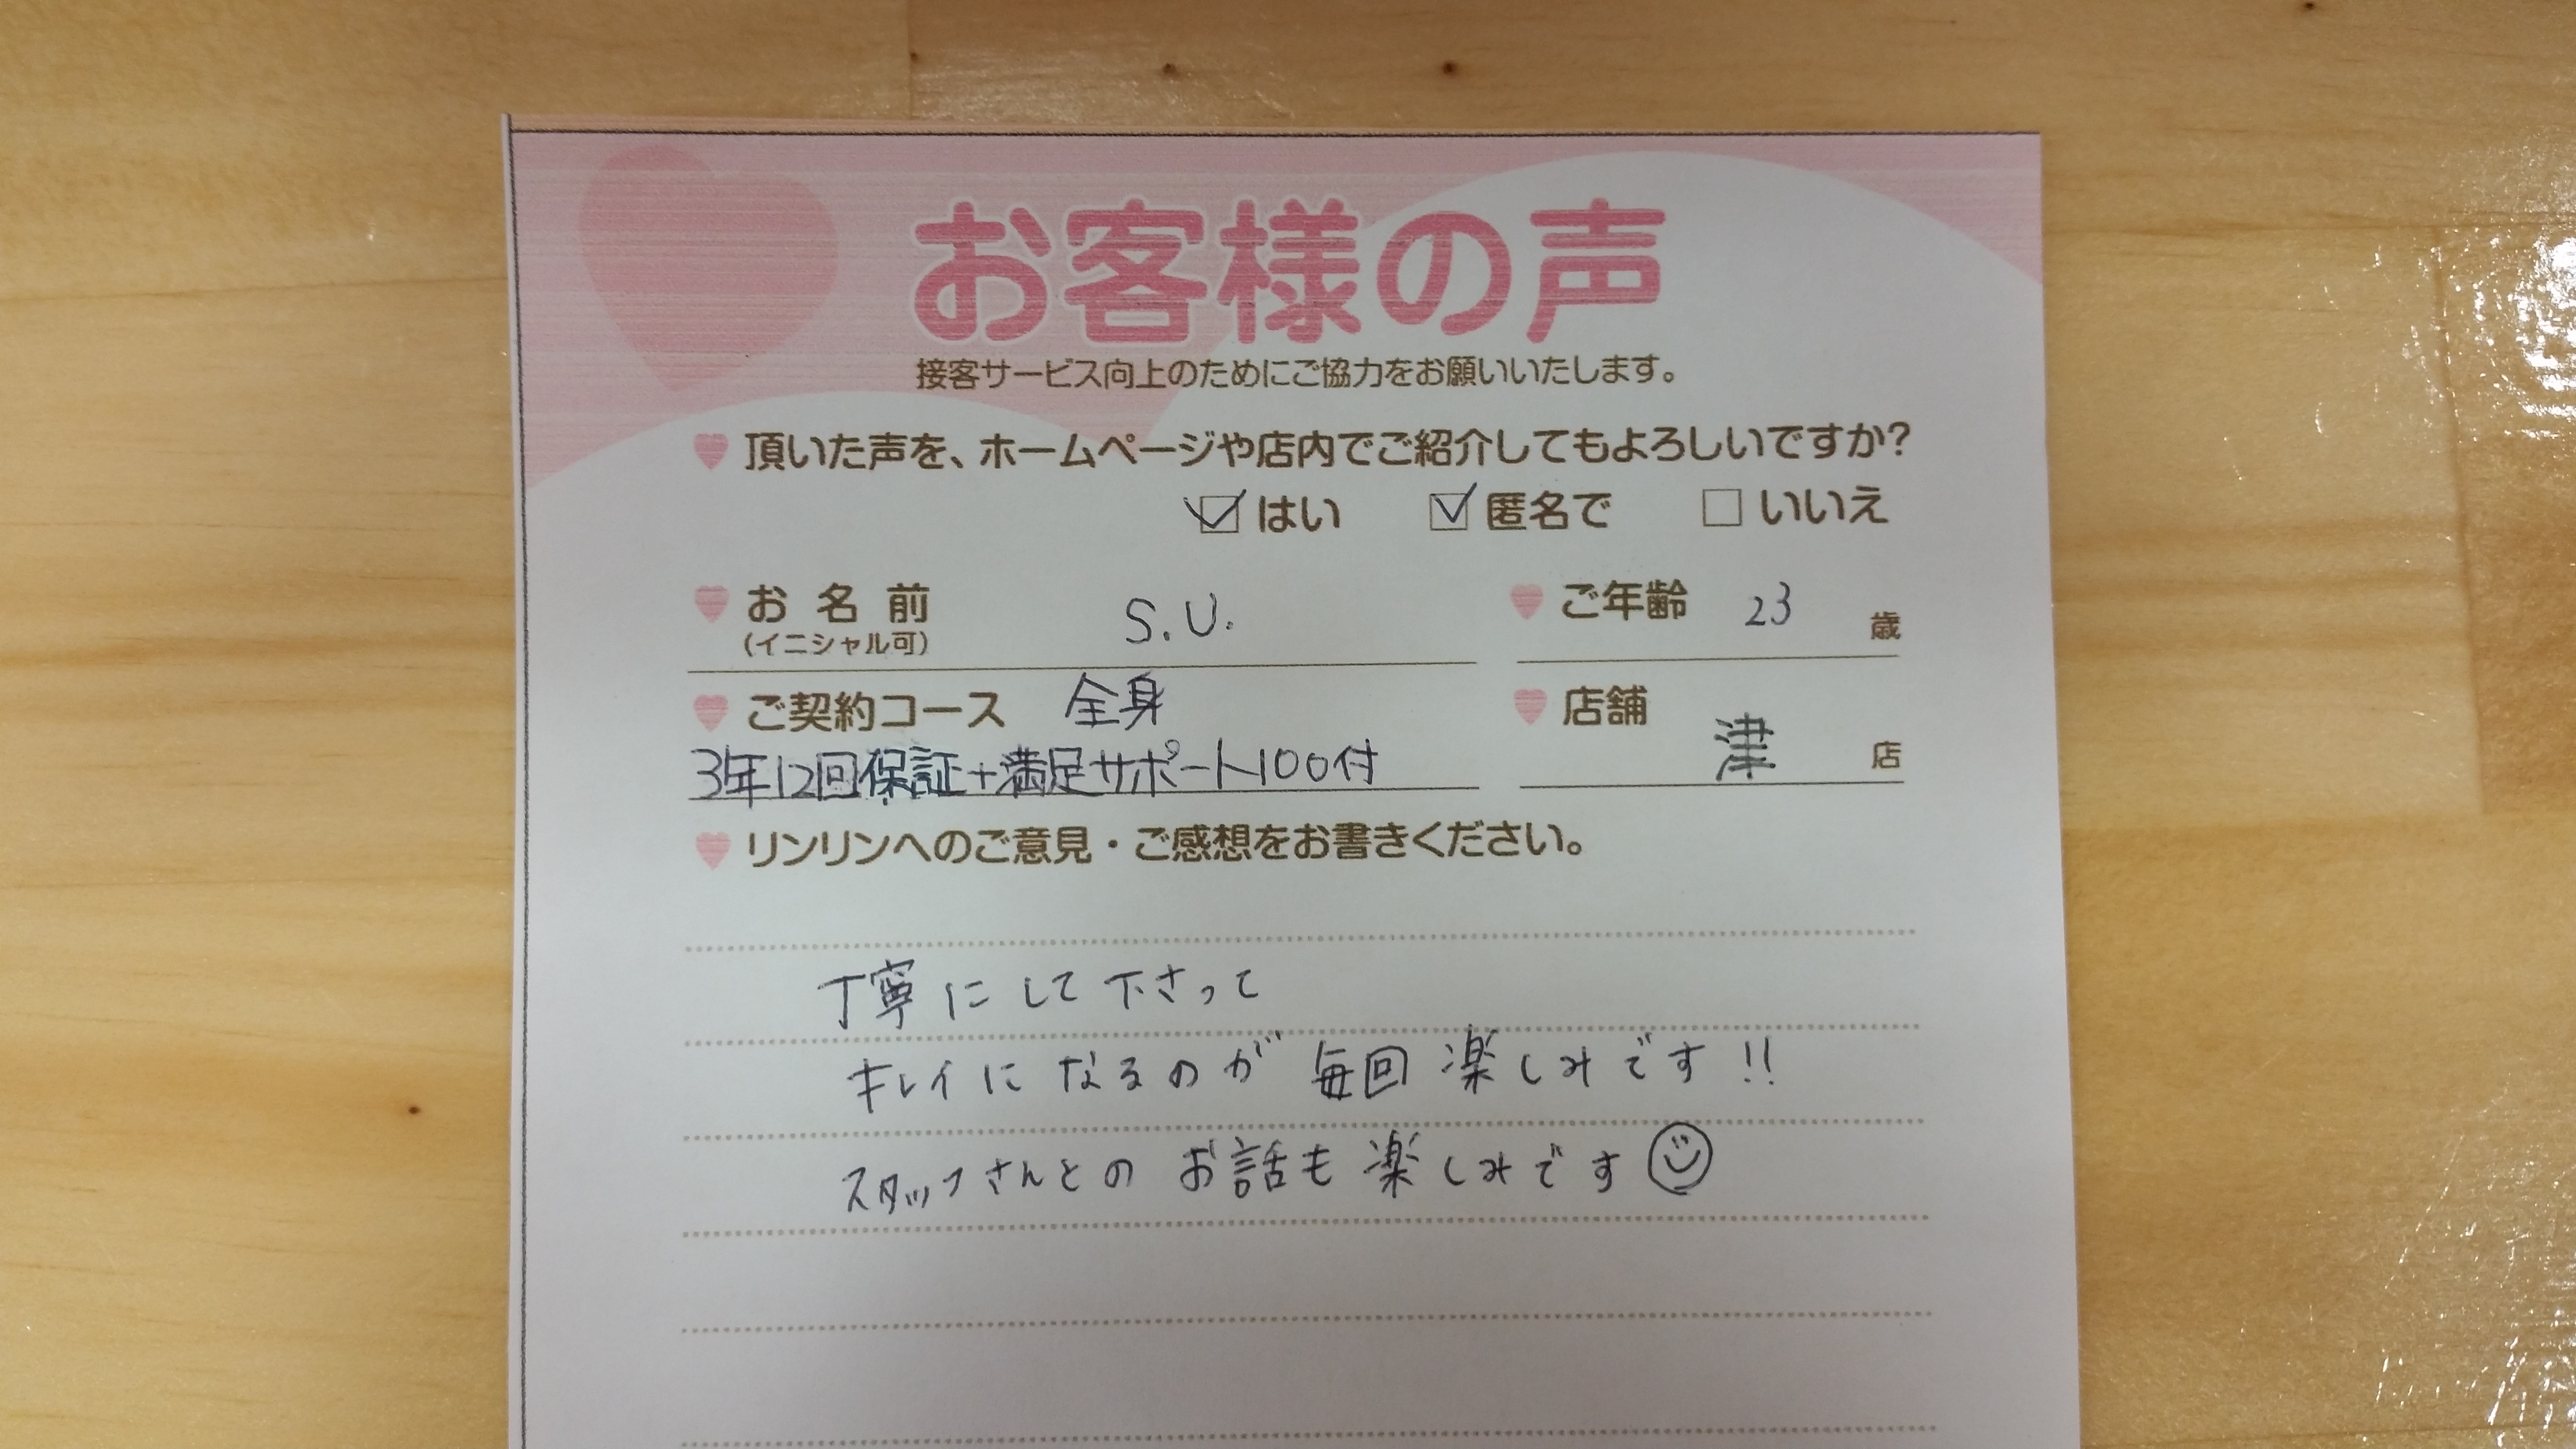 お客様の声
接客サービス向上のためにご協力をお願いいたします。
頂いた声を、ホームページや店内でご紹介してもよろしいですか?
はい 匿名で いいえ
お名前 S.U. ご年齢 23 歳
(イニシャル可)
ご契約コース 全身 店舗 津 店
3年12回保証+満足サポート100付
リンリンへのご意見・ご感想をお書きください。
丁寧にして下さって
キレイになるのが毎回楽しみです!!
スタッフさんとのお話も楽しみです